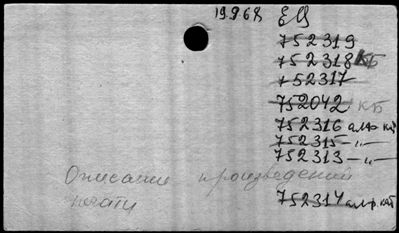 19.9.68 ЕЦ
752319
752318 КБ
752317
752042 КБ
752316 алф кат
752315 -"-
752313 -"-
Описание произведений
печати
752314 алф кат